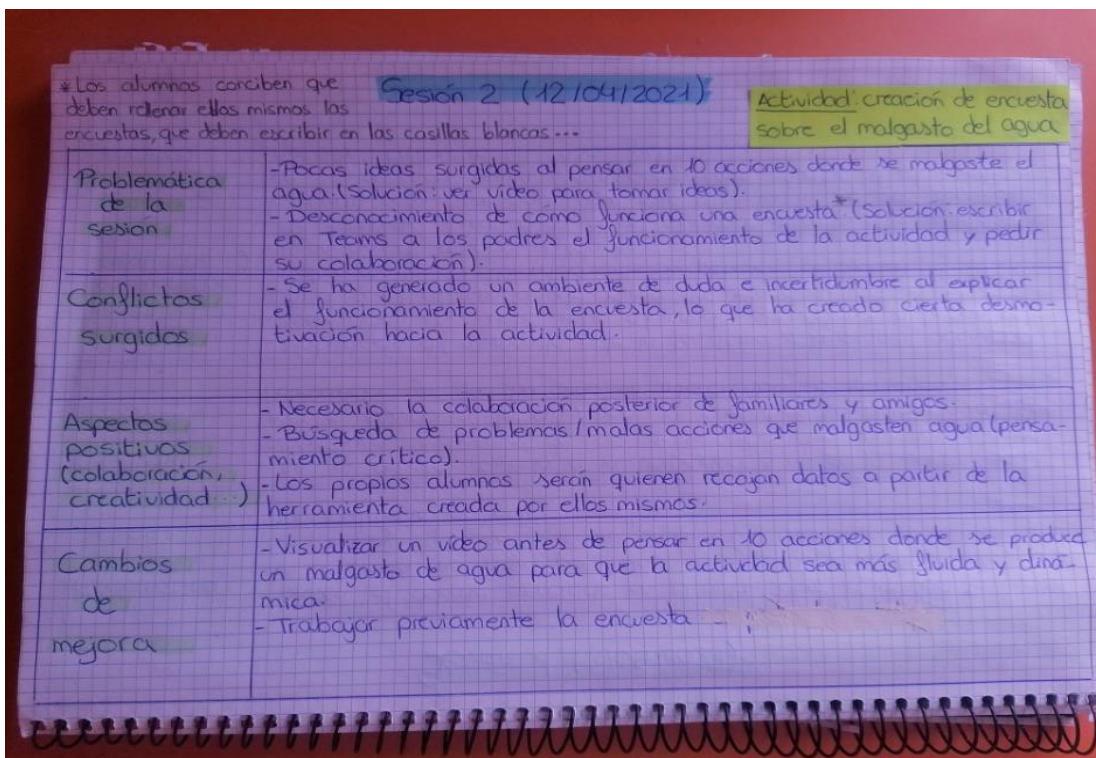 *Los alumnos conciben que
deben rellenar ellos mismos las
encuestas, que deben escribir en las casillas blancas...
Sesión 2 (12/04/2021)
Actividad: creación de encuesta
sobre el malgasto del agua
Problemática
de la
sesión
-Pocas ideas surgidas al pensar en 10 acciones donde se malgaste el
agua. (Solución: ver vídeo para tomar ideas).
- Desconocimiento de cómo funciona una encuesta* (Solución: escribir
en Teams a los padres el funcionamiento de la actividad y pedir
su colaboración).
Conflictos
surgidos
- Se ha generado un ambiente de duda e incertidumbre al explicar
el funcionamiento de la encuesta, lo que ha creado cierta desmo-
tivación hacia la actividad.
Aspectos
positivos
(colaboración,
creatividad...)
- Necesario la colaboración posterior de familiares y amigos.
- Búsqueda de problemas/malas acciones que malgasten agua (pensa-
miento crítico).
- Los propios alumnos serán quienen recojan datos a partir de la
herramienta creada por ellos mismos.
Cambios
de
mejora
- Visualizar un vídeo antes de pensar en 10 acciones donde se produce
un malgasto de agua para que la actividad sea más fluida y diná-
mica.
- Trabajar previamente la encuesta